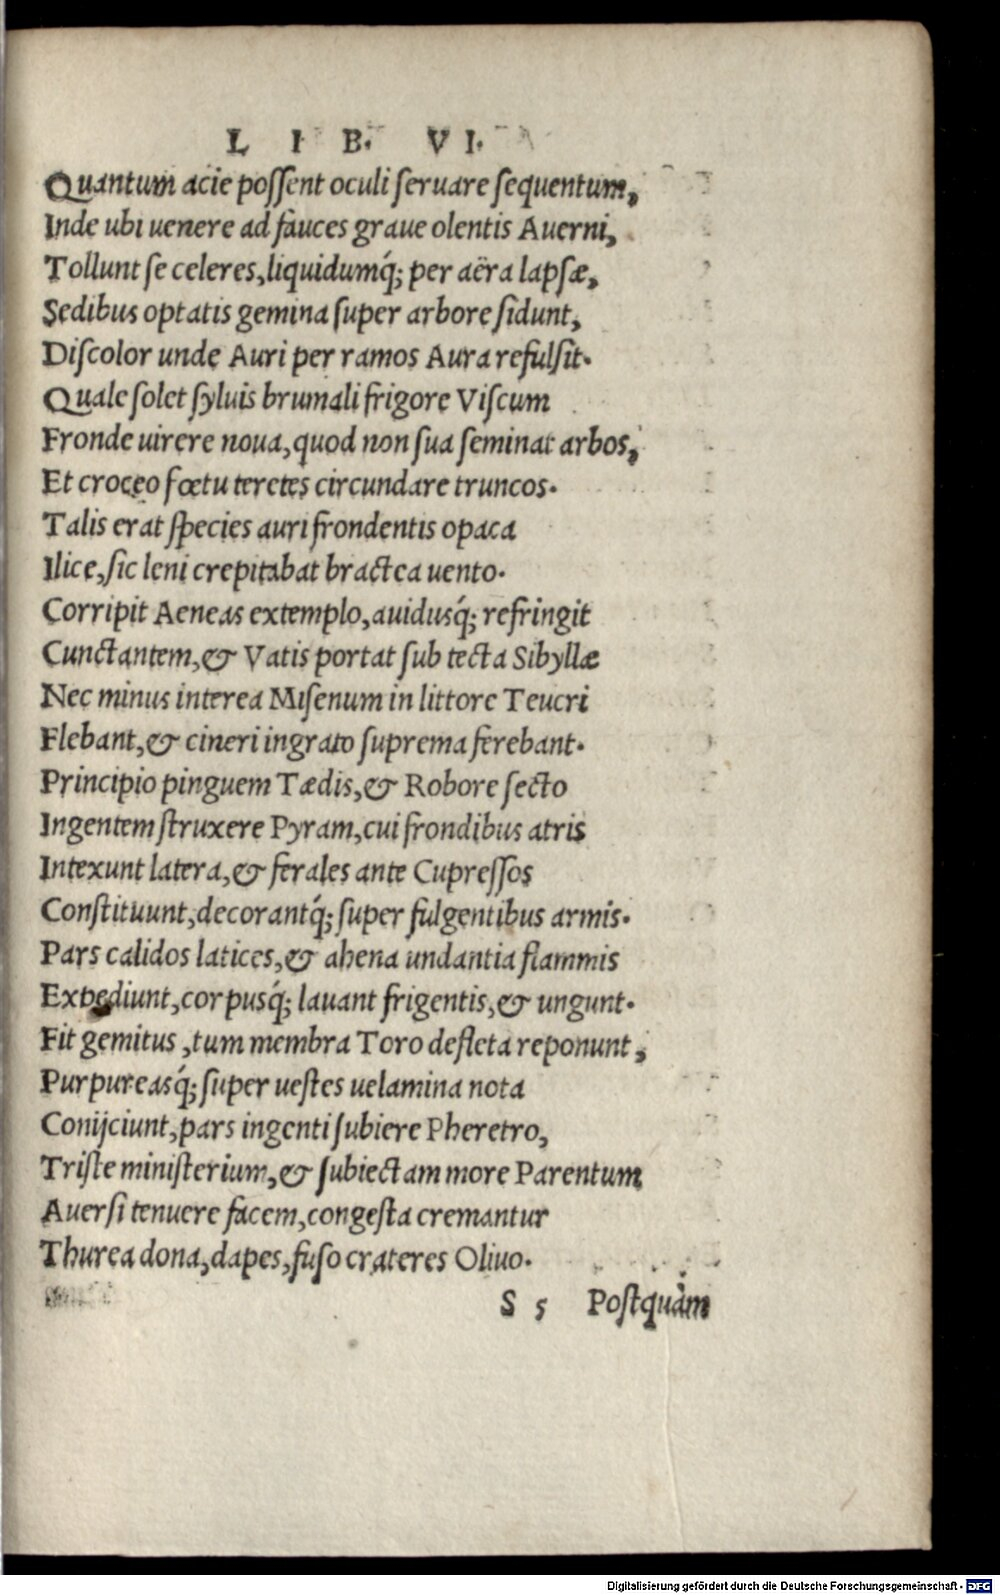 L I B. VI.
Quantum acie possent oculi seruare sequentum,
Inde ubi uenere ad fauces graue olentis Auerni,
Tollunt se celeres, liquidumq́; per aëra lapsæ,
Sedibus optatis gemina super arbore sidunt,
Discolor unde Auri per ramos Aura refulsit.
Quale solet syluis brumali frigore Viscum
Fronde uirere noua, quod non sua seminat arbos,
Et croceo fœtu teretes circundare truncos.
Talis erat species auri frondentis opaca
Ilice, sic leni crepitabat bractea uento.
Corripit Aeneas extemplo, auidusq́; refringit
Cunctantem, & Vatis portat sub tecta Sibyllæ
Nec minus interea Misenum in littore Teucri
Flebant, & cineri ingrato suprema ferebant.
Principio pinguem Tædis, & Robore secto
Ingentem struxere Pyram, cui frondibus atris
Intexunt latera, & ferales ante Cupressos
Constituunt, decorantq́; super fulgentibus armis.
Pars calidos latices, & ahena undantia flammis
Expediunt, corpusq́; lauant frigentis, & ungunt.
Fit gemitus, tum membra Toro defleta reponunt,
Purpureasq́; super uestes uelamina nota
Conijciunt, pars ingenti subiere Pheretro,
Triste ministerium, & subiectam more Parentum
Auersi tenuere facem, congesta cremantur
Thurea dona, dapes, fuso crateres Oliuo.
S 5 Postquàm
Digitalisierung gefördert durch die Deutsche Forschungsgemeinschaft - DFG